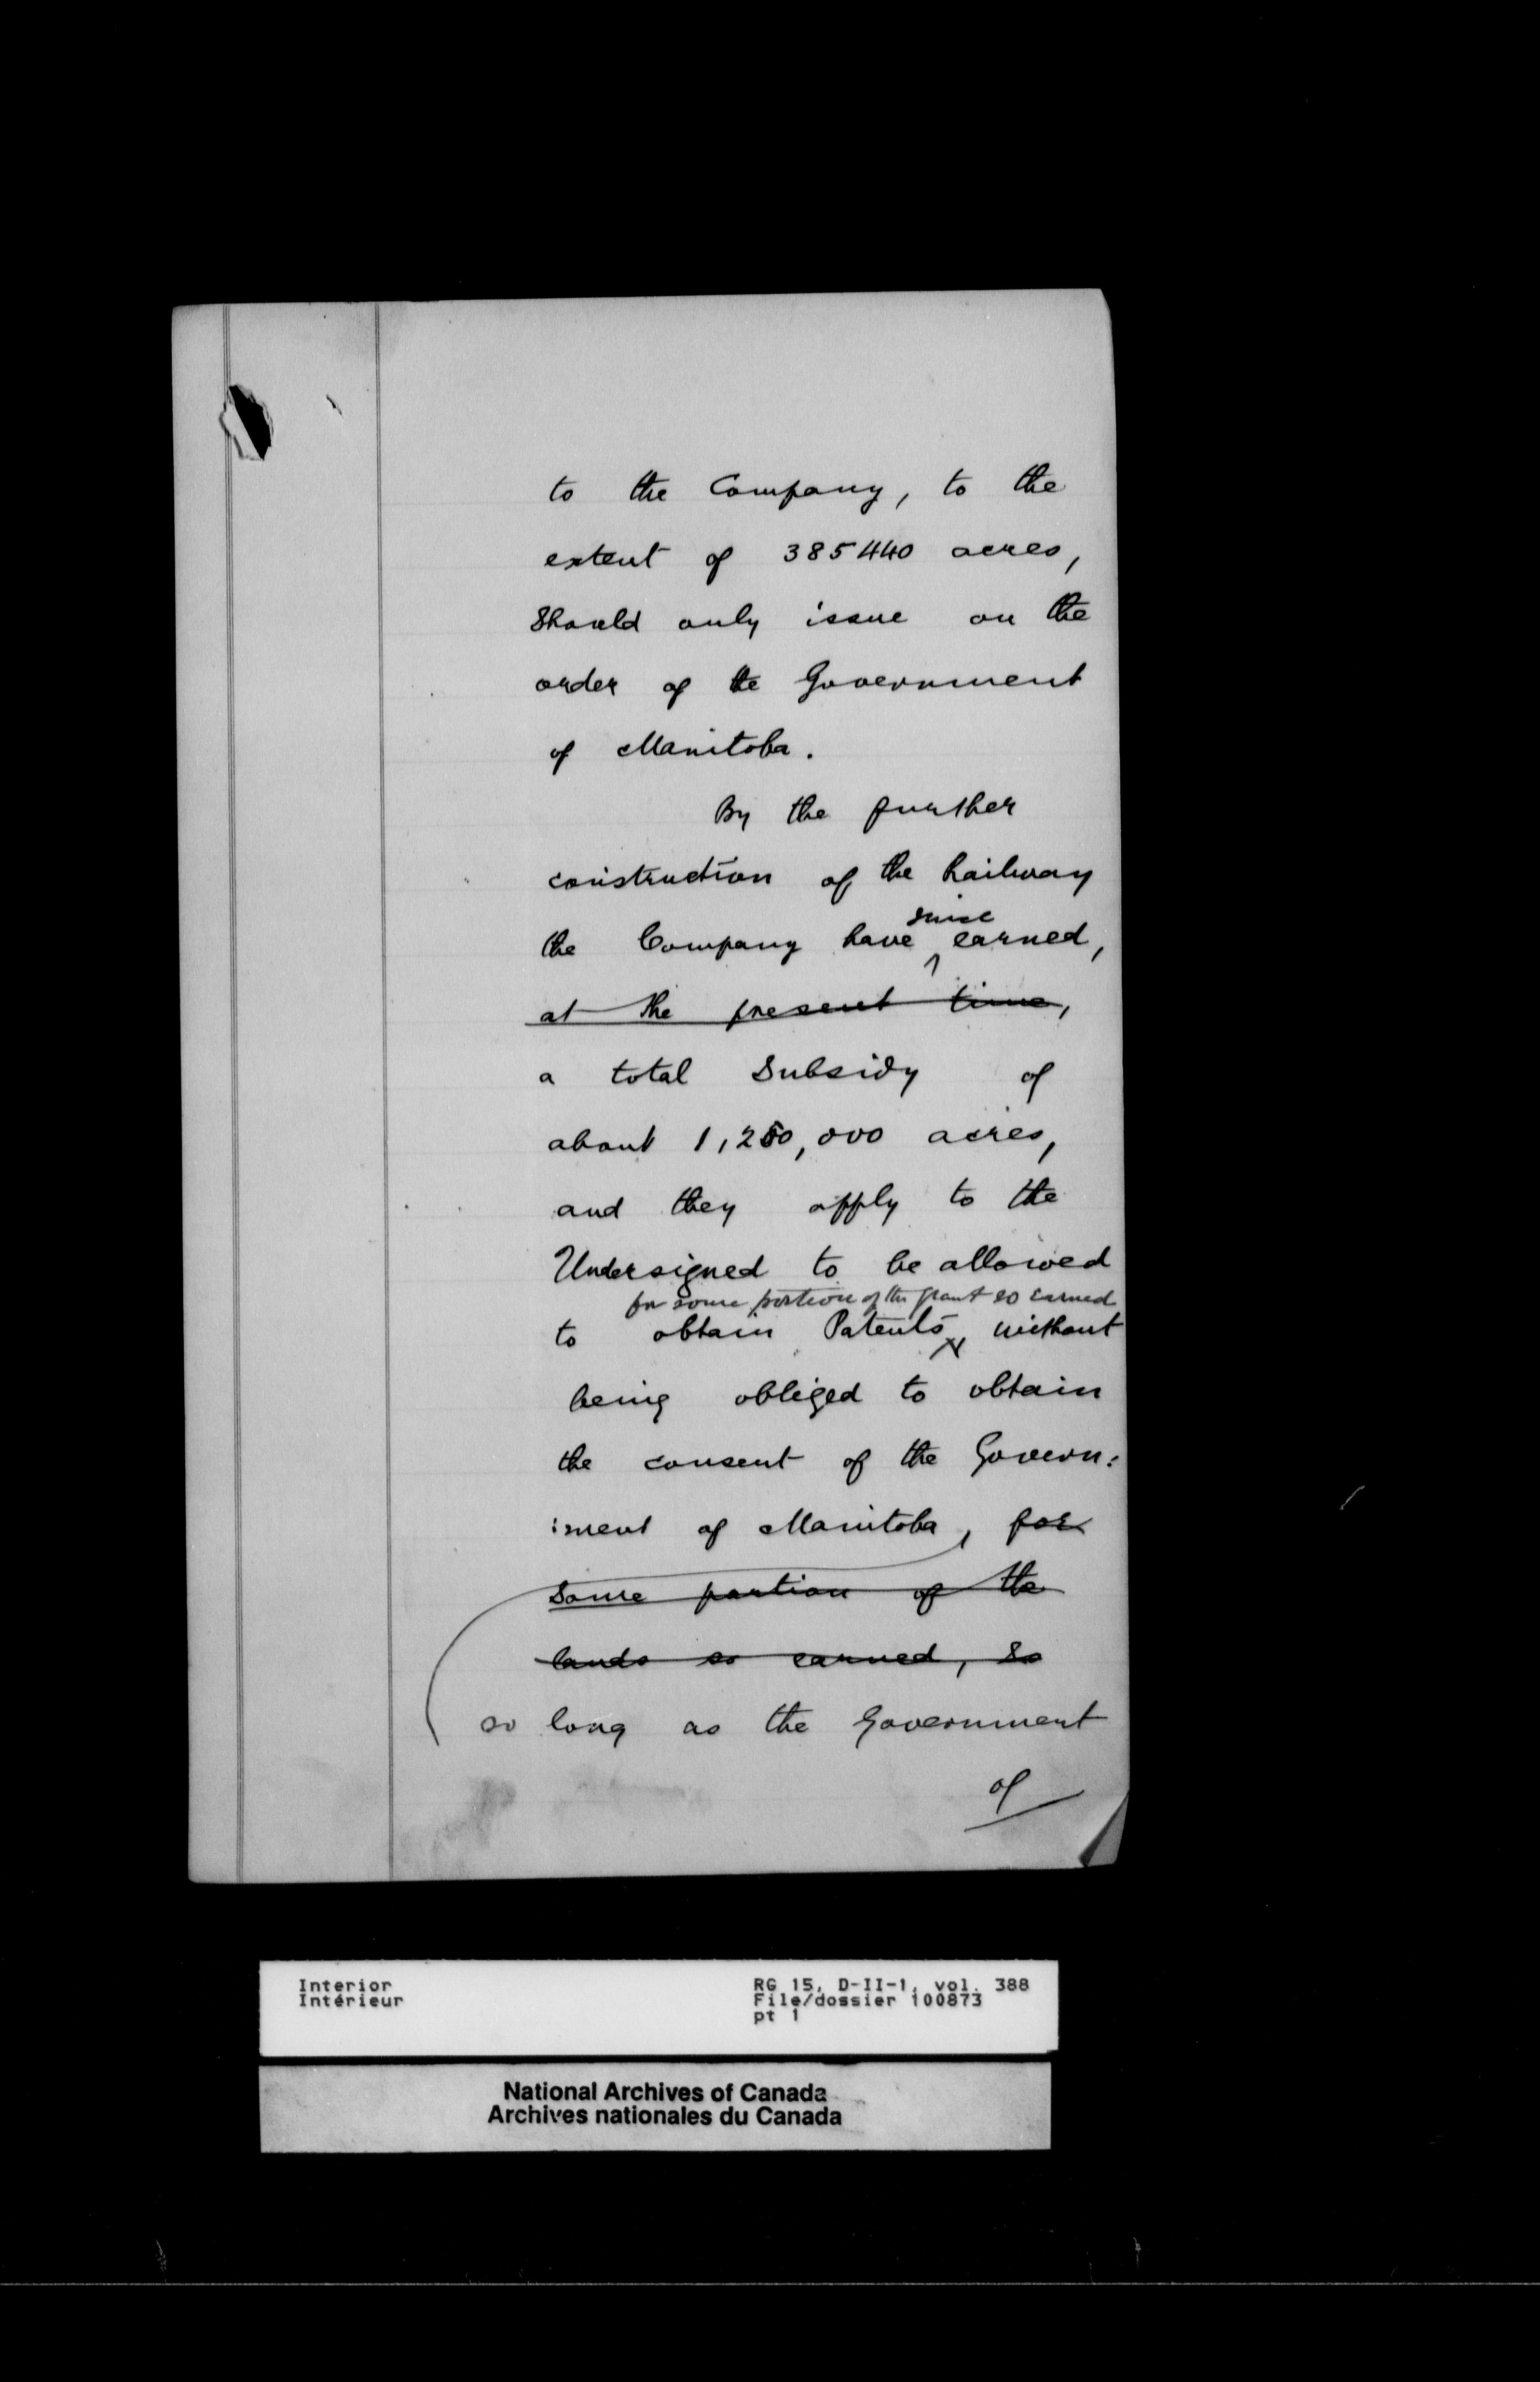 to the Company, to the
extent of 385440 acres,
Should only issue on the
order of the Government
of Manitoba.
By the further
construction of the Railway
since
the Company have earned,
at the present time,
a total Subsidy of
about 1,250,000 acres,
and they apply to the
Undersigned to be allowed
for some portion of the grant so earned
to obtain Patents, without
being obliged to obtain
the consent of the Govern:
:ment of Manitoba, for
Some portion of the
lands so earned, So
so long as the Government
of
Interior
Intérieur
RG 15, D-II-1, vol. 388
File/dossier 100873
pt 1
National Archives of Canada
Archives nationales du Canada